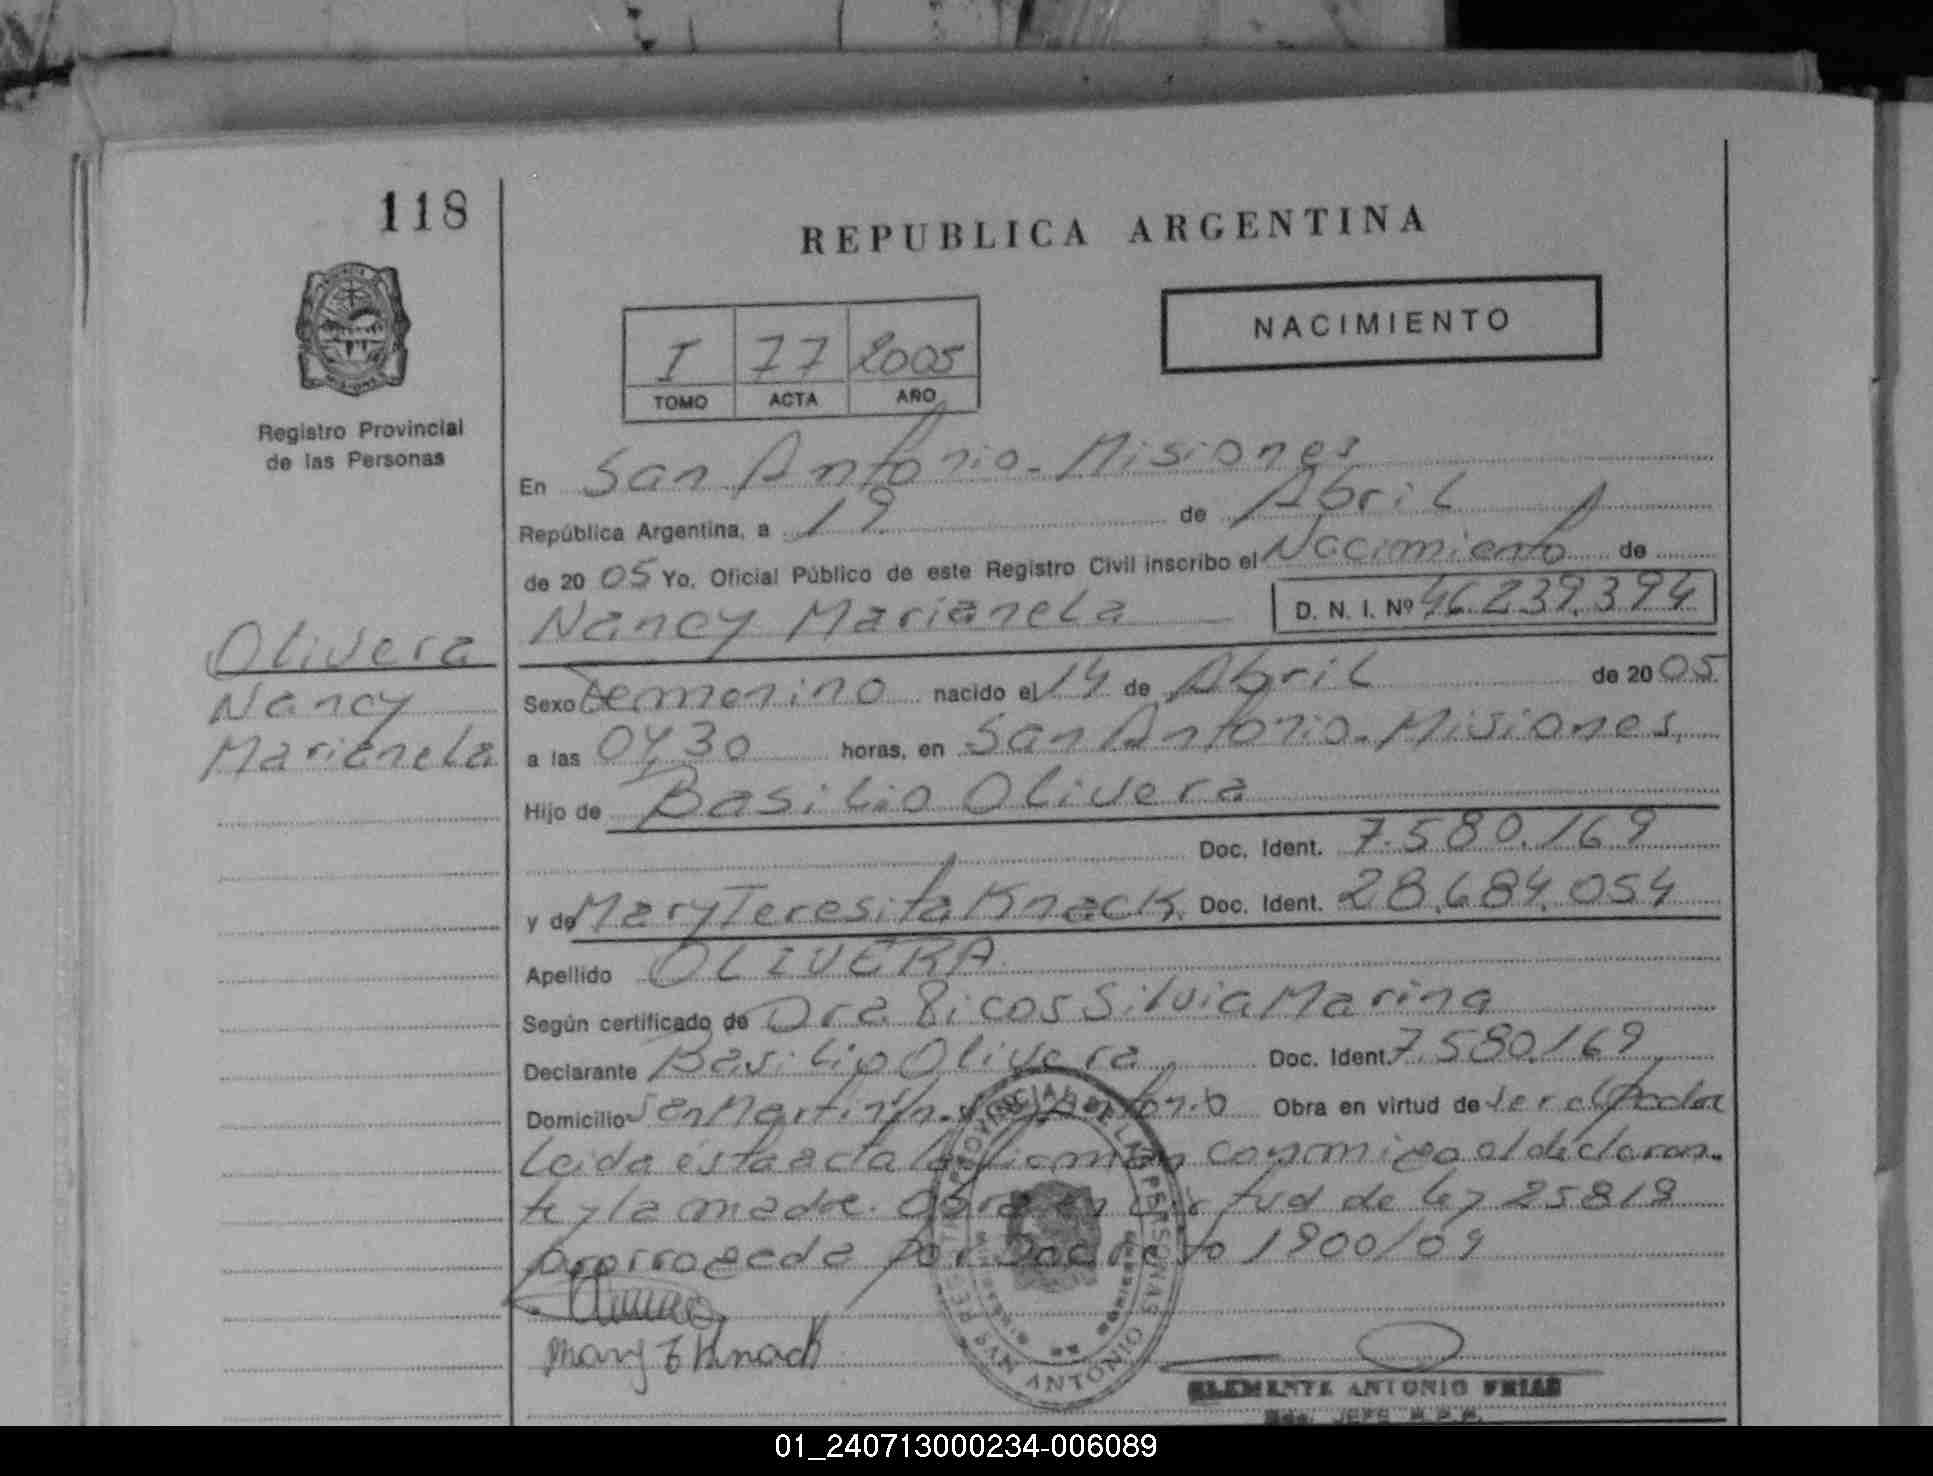 118
REPUBLICA ARGENTINA
NACIMIENTO
I 77 2005
TOMO ACTA AÑO
Registro Provincial
de las Personas
En San Antonio - Misiones
República Argentina, a 19 de Abril
de 20 05 Yo, Oficial Público de este Registro Civil inscribo el Nacimiento de
Nancy Marianela D. N. I. Nº 46.239.394
Olivera
Nancy
Marianela
Sexo Femenino nacido el 14 de Abril de 20 05
a las 04,30 horas, en San Antonio - Misiones,
Hijo de Basilio Olivera
Doc. Ident. 7.580.169
y de Mary Teresita Knack. Doc. Ident. 28.684.054
Apellido OLIVERA
Según certificado de Dra Silvia Marina
Declarante Basilio Olivera Doc. Ident. 7.580.169
Domicilio San Martin Antonio Obra en virtud de ser el Padre
Leida esta acta la firman conmigo el declaran-
te y la madre. Obra en virtud de ley 25819
prorrogada por Decreto 1900/04
Mary T Knack
PROVINCIAL DE LAS PERSONAS
SAN ANTONIO
CLEMENTE ANTONIO FRIAS
JEFE R.P.P.
01_240713000234-006089